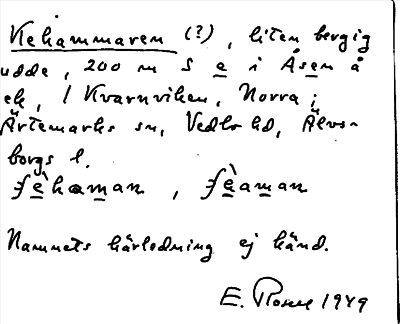 Kehammaren (?), liten bergig
udde, 200 m S e i Åsen å
ek, i Kvarnviken, Norra
Ärtemarks sn, Vedbo hd, Älvs-
borgs l.
Namnets härledning ej känd.
E. 1949